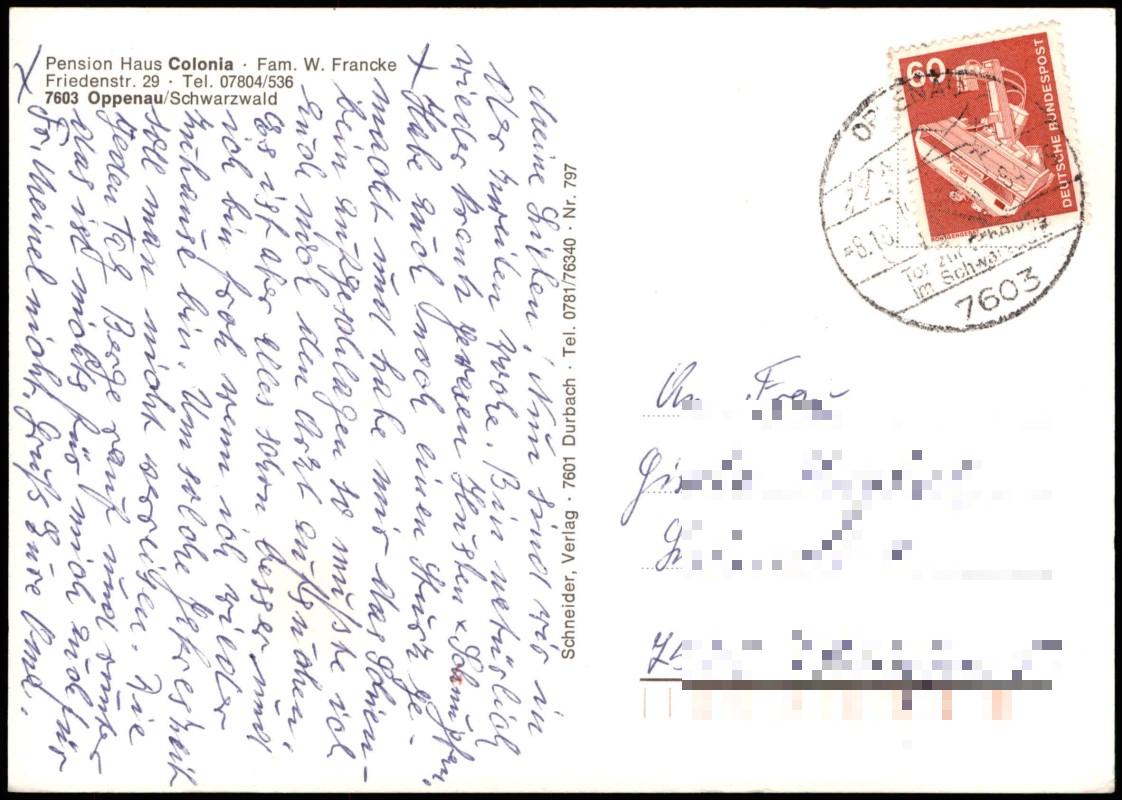 Pension Haus Colonia · Fam. W. Francke
Friedenstr. 29 · Tel. 07804/536
7603 Oppenau/Schwarzwald
Meine Lieben, Nun sind wir in
der zweiten Woche. Bin natürlich
wieder krank gewesen Husten + Schnupfen.
+ Habe auch noch einen Sturz ge-
macht und habe mir das Schien-
bein aufgeschlagen so mußte ich
auch noch den Arzt aufsuchen.
Es ist aber alles schon besser und
ich bin froh wenn ich wieder
zuhause bin. Um solche Jahreszeit
soll man nicht verreisen. Die
jeden Tag Berge rauf und runter
das ist nichts für mich auch für
+ Fr. Meinel nicht. Gruß Eure Oma.
Schneider, Verlag · 7601 Durbach · Tel. 0781/76340 · Nr. 797
60
DEUTSCHE BUNDESPOST
OPPENAU
-8.10.
Tor zur
im Schwarzwald
7603
An Frau